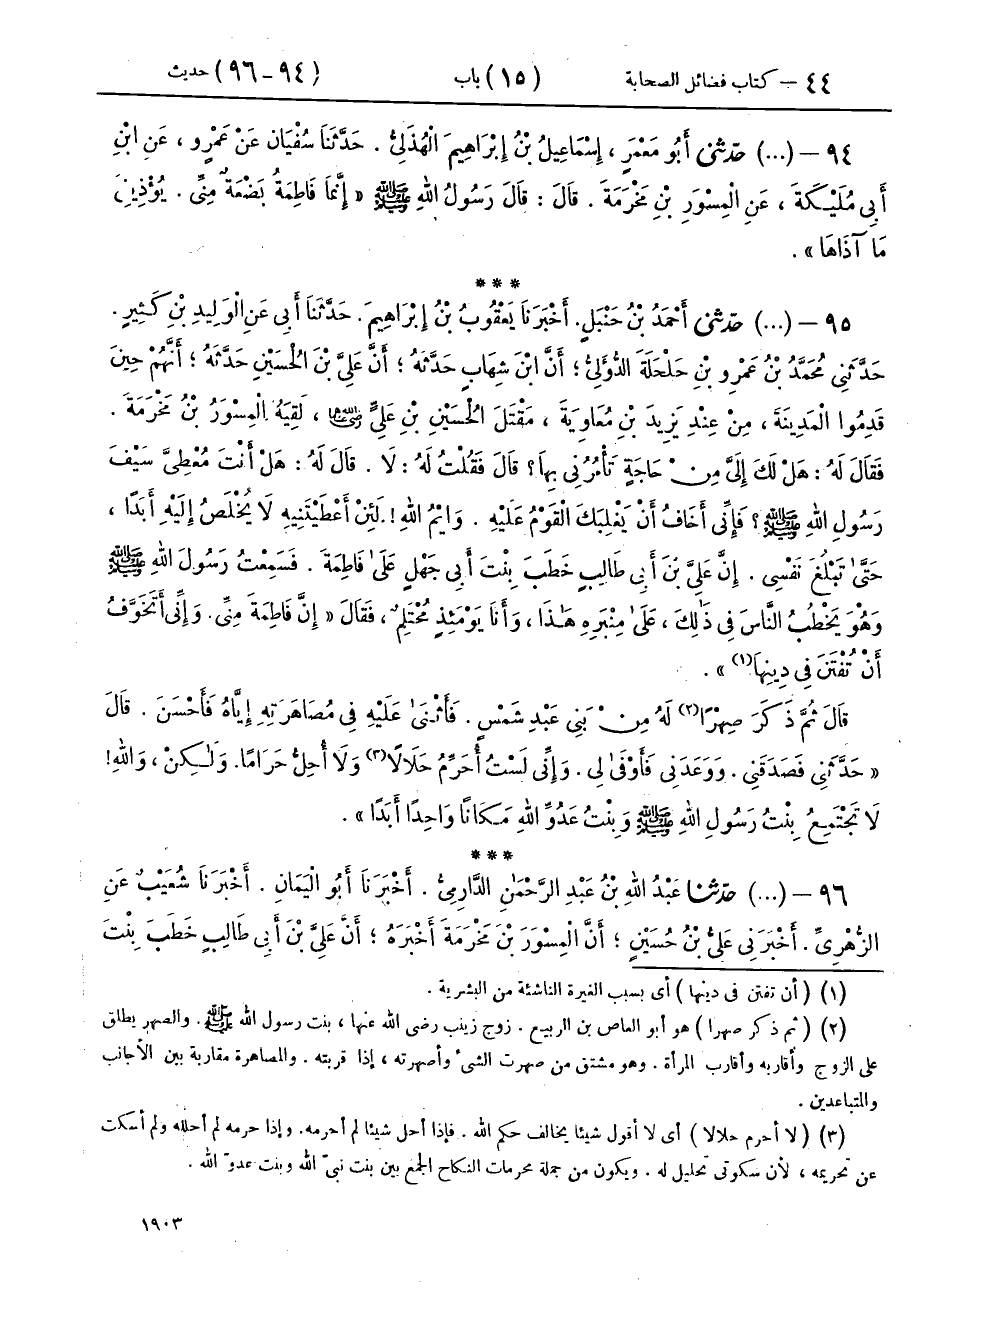 ٤٤ – كتاب فضائل الصحابة (١٥) باب (٩٤-٩٦) حديث
٩٤ – (...) حَدَّثَنِى أَبُو مَعْمَرٍ ، إِسْمَاعِيلُ بْنُ إِبْرَاهِيمَ الْهُذَلِىُّ . حَدَّثَنَا سُفْيَانُ عَنْ عَمْرٍو ، عَنِ ابْنِ
أَبِى مُلَيْكَةَ ، عَنِ الْمِسْوَرِ بْنِ مَخْرَمَةَ . قَالَ : قَالَ رَسُولُ اللهِ ﷺ « إِنَّمَا فَاطِمَةُ بَضْعَةٌ مِنِّى . يُؤْذِينِى
مَا آذَاهَا » .
***
٩٥ – (...) حَدَّثَنِى أَحْمَدُ بْنُ حَنْبَلٍ. أَخْبَرَنَا يَعْقُوبُ بْنُ إِبْرَاهِيمَ. حَدَّثَنَا أَبِى عَنِ الْوَلِيدِ بْنِ كَثِيرٍ.
حَدَّثَنِى مُحَمَّدُ بْنُ عَمْرِو بْنِ حَلْحَلَةَ الدُّؤَلِىُّ ؛ أَنَّ ابْنَ شِهَابٍ حَدَّثَهُ ؛ أَنَّ عَلِىَّ بْنَ الْحُسَيْنِ حَدَّثَهُ ؛ أَنَّهُمْ حِينَ
قَدِمُوا الْمَدِينَةَ ، مِنْ عِنْدِ يَزِيدَ بْنِ مُعَاوِيَةَ ، مَقْتَلَ الْحُسَيْنِ بْنِ عَلِىٍّ رضي الله عنهما ، لَقِيَهُ الْمِسْوَرُ بْنُ مَخْرَمَةَ .
فَقَالَ لَهُ : هَلْ لَكَ إِلَىَّ مِنْ حَاجَةٍ تَأْمُرُنِى بِهَا؟ قَالَ فَقُلْتُ لَهُ : لَا . قَالَ لَهُ : هَلْ أَنْتَ مُعْطِىَّ سَيْفَ
رَسُولِ اللهِ ﷺ ؟ فَإِنِّى أَخَافُ أَنْ يَغْلِبَكَ الْقَوْمُ عَلَيْهِ . وَايْمُ اللهِ! لَئِنْ أَعْطَيْتَنِيهِ لَا يُخْلَصُ إِلَيْهِ أَبَدًا ،
حَتَّىٰ تَبْلُغَ نَفْسِى . إِنَّ عَلِىَّ بْنَ أَبِى طَالِبٍ خَطَبَ بِنْتَ أَبِى جَهْلٍ عَلَىٰ فَاطِمَةَ . فَسَمِعْتُ رَسُولَ اللهِ ﷺ
وَهُوَ يَخْطُبُ النَّاسَ فِى ذَٰلِكَ ، عَلَىٰ مِنْبَرِهِ هَـٰذَا ، وَأَنَا يَوْمَئِذٍ مُحْتَلِمٌ ، فَقَالَ « إِنَّ فَاطِمَةَ مِنِّى. وَإِنِّى أَتَخَوَّفُ
أَنْ تُفْتَنَ فِى دِينِهَا(١) » .
قَالَ ثُمَّ ذَكَرَ صِهْرًا(٢) لَهُ مِنْ بَنِى عَبْدِ شَمْسٍ . فَأَثْنَىٰ عَلَيْهِ فِى مُصَاهَرَتِهِ إِيَّاهُ فَأَحْسَنَ . قَالَ
« حَدَّثَنِى فَصَدَقَنِى . وَوَعَدَنِى فَأَوْفَىٰ لِى . وَإِنِّى لَسْتُ أُحَرِّمُ حَلَالًا(٣) وَلَا أُحِلُّ حَرَامًا. وَلَـٰكِنْ ، وَاللهِ!
لَا تَجْتَمِعُ بِنْتُ رَسُولِ اللهِ ﷺ وَبِنْتُ عَدُوِّ اللهِ مَكَانًا وَاحِدًا أَبَدًا » .
***
٩٦ – (...) حَدَّثَنَا عَبْدُ اللهِ بْنُ عَبْدِ الرَّحْمَـٰنِ الدَّارِمِىُّ . أَخْبَرَنَا أَبُو الْيَمَانِ . أَخْبَرَنَا شُعَيْبٌ عَنِ
الزُّهْرِىِّ . أَخْبَرَنِى عَلِىُّ بْنُ حُسَيْنٍ ؛ أَنَّ الْمِسْوَرَ بْنَ مَخْرَمَةَ أَخْبَرَهُ ؛ أَنَّ عَلِىَّ بْنَ أَبِى طَالِبٍ خَطَبَ بِنْتَ
(١) (أن تفتن فى دينها) أى بسبب الغيرة الناشئة من البشرية .
(٢) (ثم ذكر صهرا) هو أبو العاص بن الربيع . زوج زينب رضى الله عنها ، بنت رسول الله ﷺ . والصهر يطلق
على الزوج وأقاربه وأقارب المرأة . وهو مشتق من صهرت الشىء وأصهرته ، إذا قربته . والمصاهرة مقاربة بين الأجانب
والمتباعدين .
(٣) (لا أحرم حلالا) أى لا أقول شيئا يخالف حكم الله . فإذا أحل شيئا لم أحرمه. وإذا حرمه لم أحلله ولم أسكت
عن تحريمه ، لأن سكوتى تحليل له . ويكون من جملة محرمات النكاح الجمع بين بنت نبىّ الله وبنت عدوّ الله .
١٩٠٣